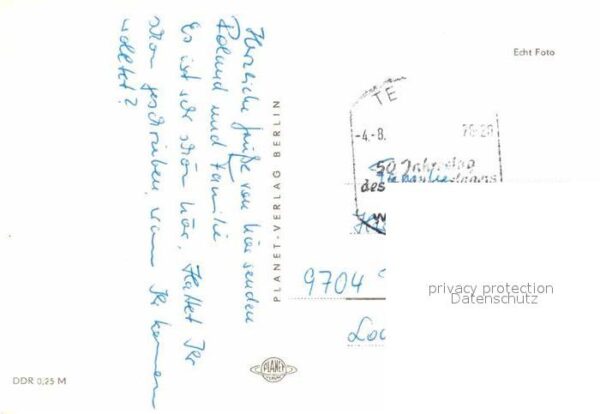 Herzliche Grüße von hier senden
Roland und Familie
Es ist sehr schön hier. Hattet Ihr
schon geschrieben, wann Ihr kommen
wolltet?
PLANET-VERLAG BERLIN
Echt Foto
TE
-4.-8.
50. Jahrestag
des
9704
privacy protection
Datenschutz
PLANET
DDR 0,25 M